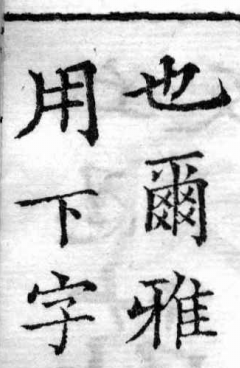 也爾雅
用下字